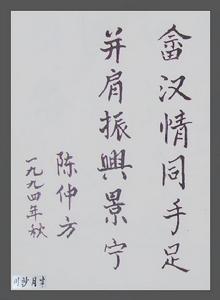 畲汉情同手足
并肩振興景宁
陈仲方
一九九四年秋